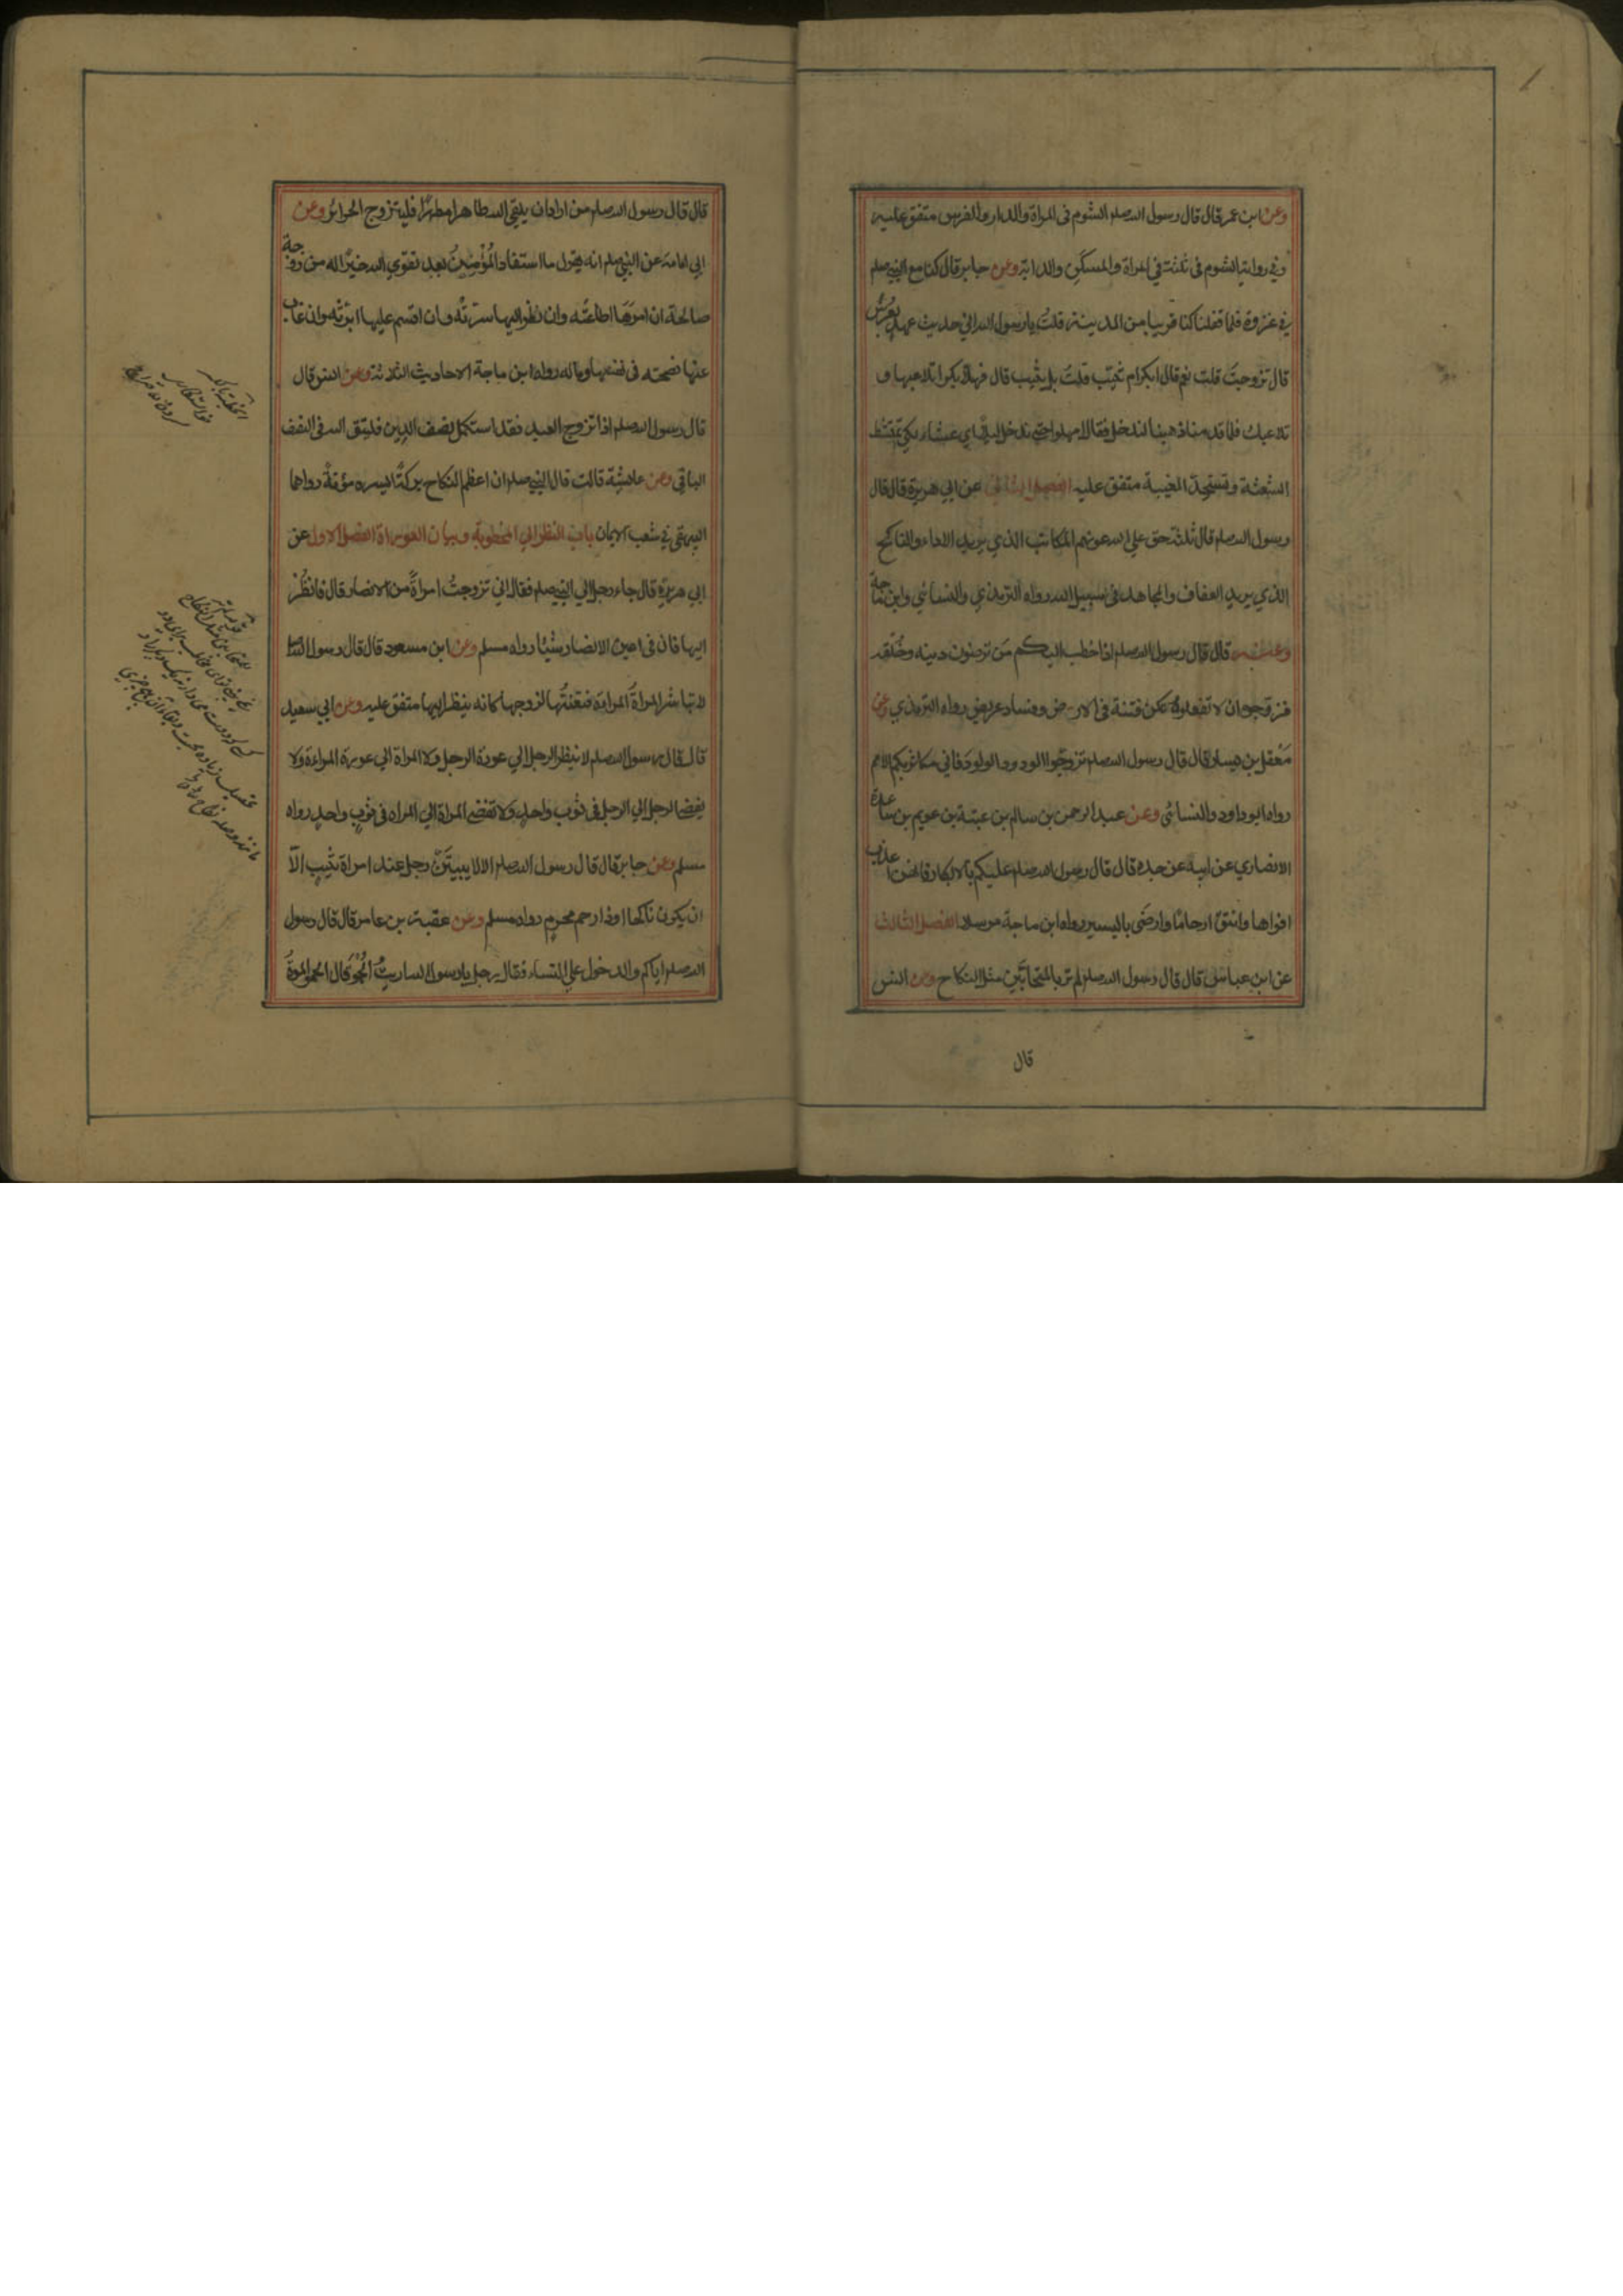 وعن ابن عمر قال قال رسول الله صلم الشوم فى المراة والدار والفرس متفق عليه
وفي رواية الشوم فى ثلثة في المراة والمسكن والدابة وعن جابر قال كنا مع النبي صلم
في غزوة فلما قفلنا كنا قريبا من المدينة قلت يا رسول الله اني حديث عهد بعرس
قال تزوجت قلت نعم قال ابكر ام ثيب قلت بل ثيب قال فهلا بكرا تلاعبها و
تلاعبك فلما قدمنا ذهبنا لندخل فقال امهلوا حتى ندخل ليلا اي عشاء لكي تمتشط
الشعثة وتستحد المغيبة متفق عليه الفصل الثاني عن ابي هريرة قال قال
رسول الله صلم قال ثلثة حق على الله عونهم المكاتب الذي يريد الاداء والناكح
الذي يريد العفاف والمجاهد فى سبيل الله رواه الترمذي والنسائي وابن ماجة
وعنه قال قال رسول الله صلم اذا خطب اليكم من ترضون دينه وخلقه
فزوجوه ان لا تفعلوه تكن فتنة فى الارض وفساد عريض رواه الترمذي وعن
معقل بن يسار قال قال رسول الله صلم تزوجوا الودود الولود فاني مكاثر بكم الامم
رواه ابو داود والنسائي وعن عبد الرحمن بن سالم بن عتبة بن عويم بن ساعدة
الانصاري عن ابيه عن جده قال قال رسول الله صلم عليكم بالابكار فانهن اعذب
افواها وانتق ارحاما وارضى باليسير رواه ابن ماجة مرسلا الفصل الثالث
عن ابن عباس قال قال رسول الله صلم لم تر للمتحابين مثل النكاح وعن انس
قال
قال قال رسول الله صلم من اراد ان يلقى الله طاهرا مطهرا فليتزوج الحرائر وعن
ابي امامة عن النبي صلم انه يقول ما استفاد المؤمن بعد تقوي الله خيرا له من زوجة
صالحة ان امرها اطاعته وان نظر اليها سرته وان اقسم عليها ابرته وان غاب
عنها نصحته فى نفسها وماله رواه ابن ماجة الاحاديث الثلاثة وعن انس قال
قال رسول الله صلم اذا تزوج العبد فقد استكمل نصف الدين فليتق الله فى النصف
الباقي وعن عايشة قالت قال النبي صلم ان اعظم النكاح بركة ايسره مؤنة رواهما
البيهقي في شعب الايمان باب النظر الي المخطوبة وبيان العورات الفصل الاول عن
ابي هريرة قال جاء رجل الي النبي صلم فقال اني تزوجت امراة من الانصار قال فانظر
اليها فان فى اعين الانصار شيئا رواه مسلم وعن ابن مسعود قال قال رسول الله صلم
لا تباشر المراة المراة فتنعتها لزوجها كانه ينظر اليها متفق عليه وعن ابي سعيد
قال قال رسول الله صلم لا ينظر الرجل الي عورة الرجل ولا المراة الي عورة المراءة ولا
يفضي الرجل الي الرجل فى ثوب واحد ولا تفضي المراة الي المراه فى ثوب واحد رواه
مسلم وعن جابر قال قال رسول الله صلم الا لا يبيتن رجل عند امراة ثيب الا
ان يكون ناكحا او ذا رحم محرم رواه مسلم وعن عقبة بن عامر قال قال رسول
الله صلم اياكم والدخول على النساء فقال رجل يا رسول الله ارايت الحمو قال الحمو الموت